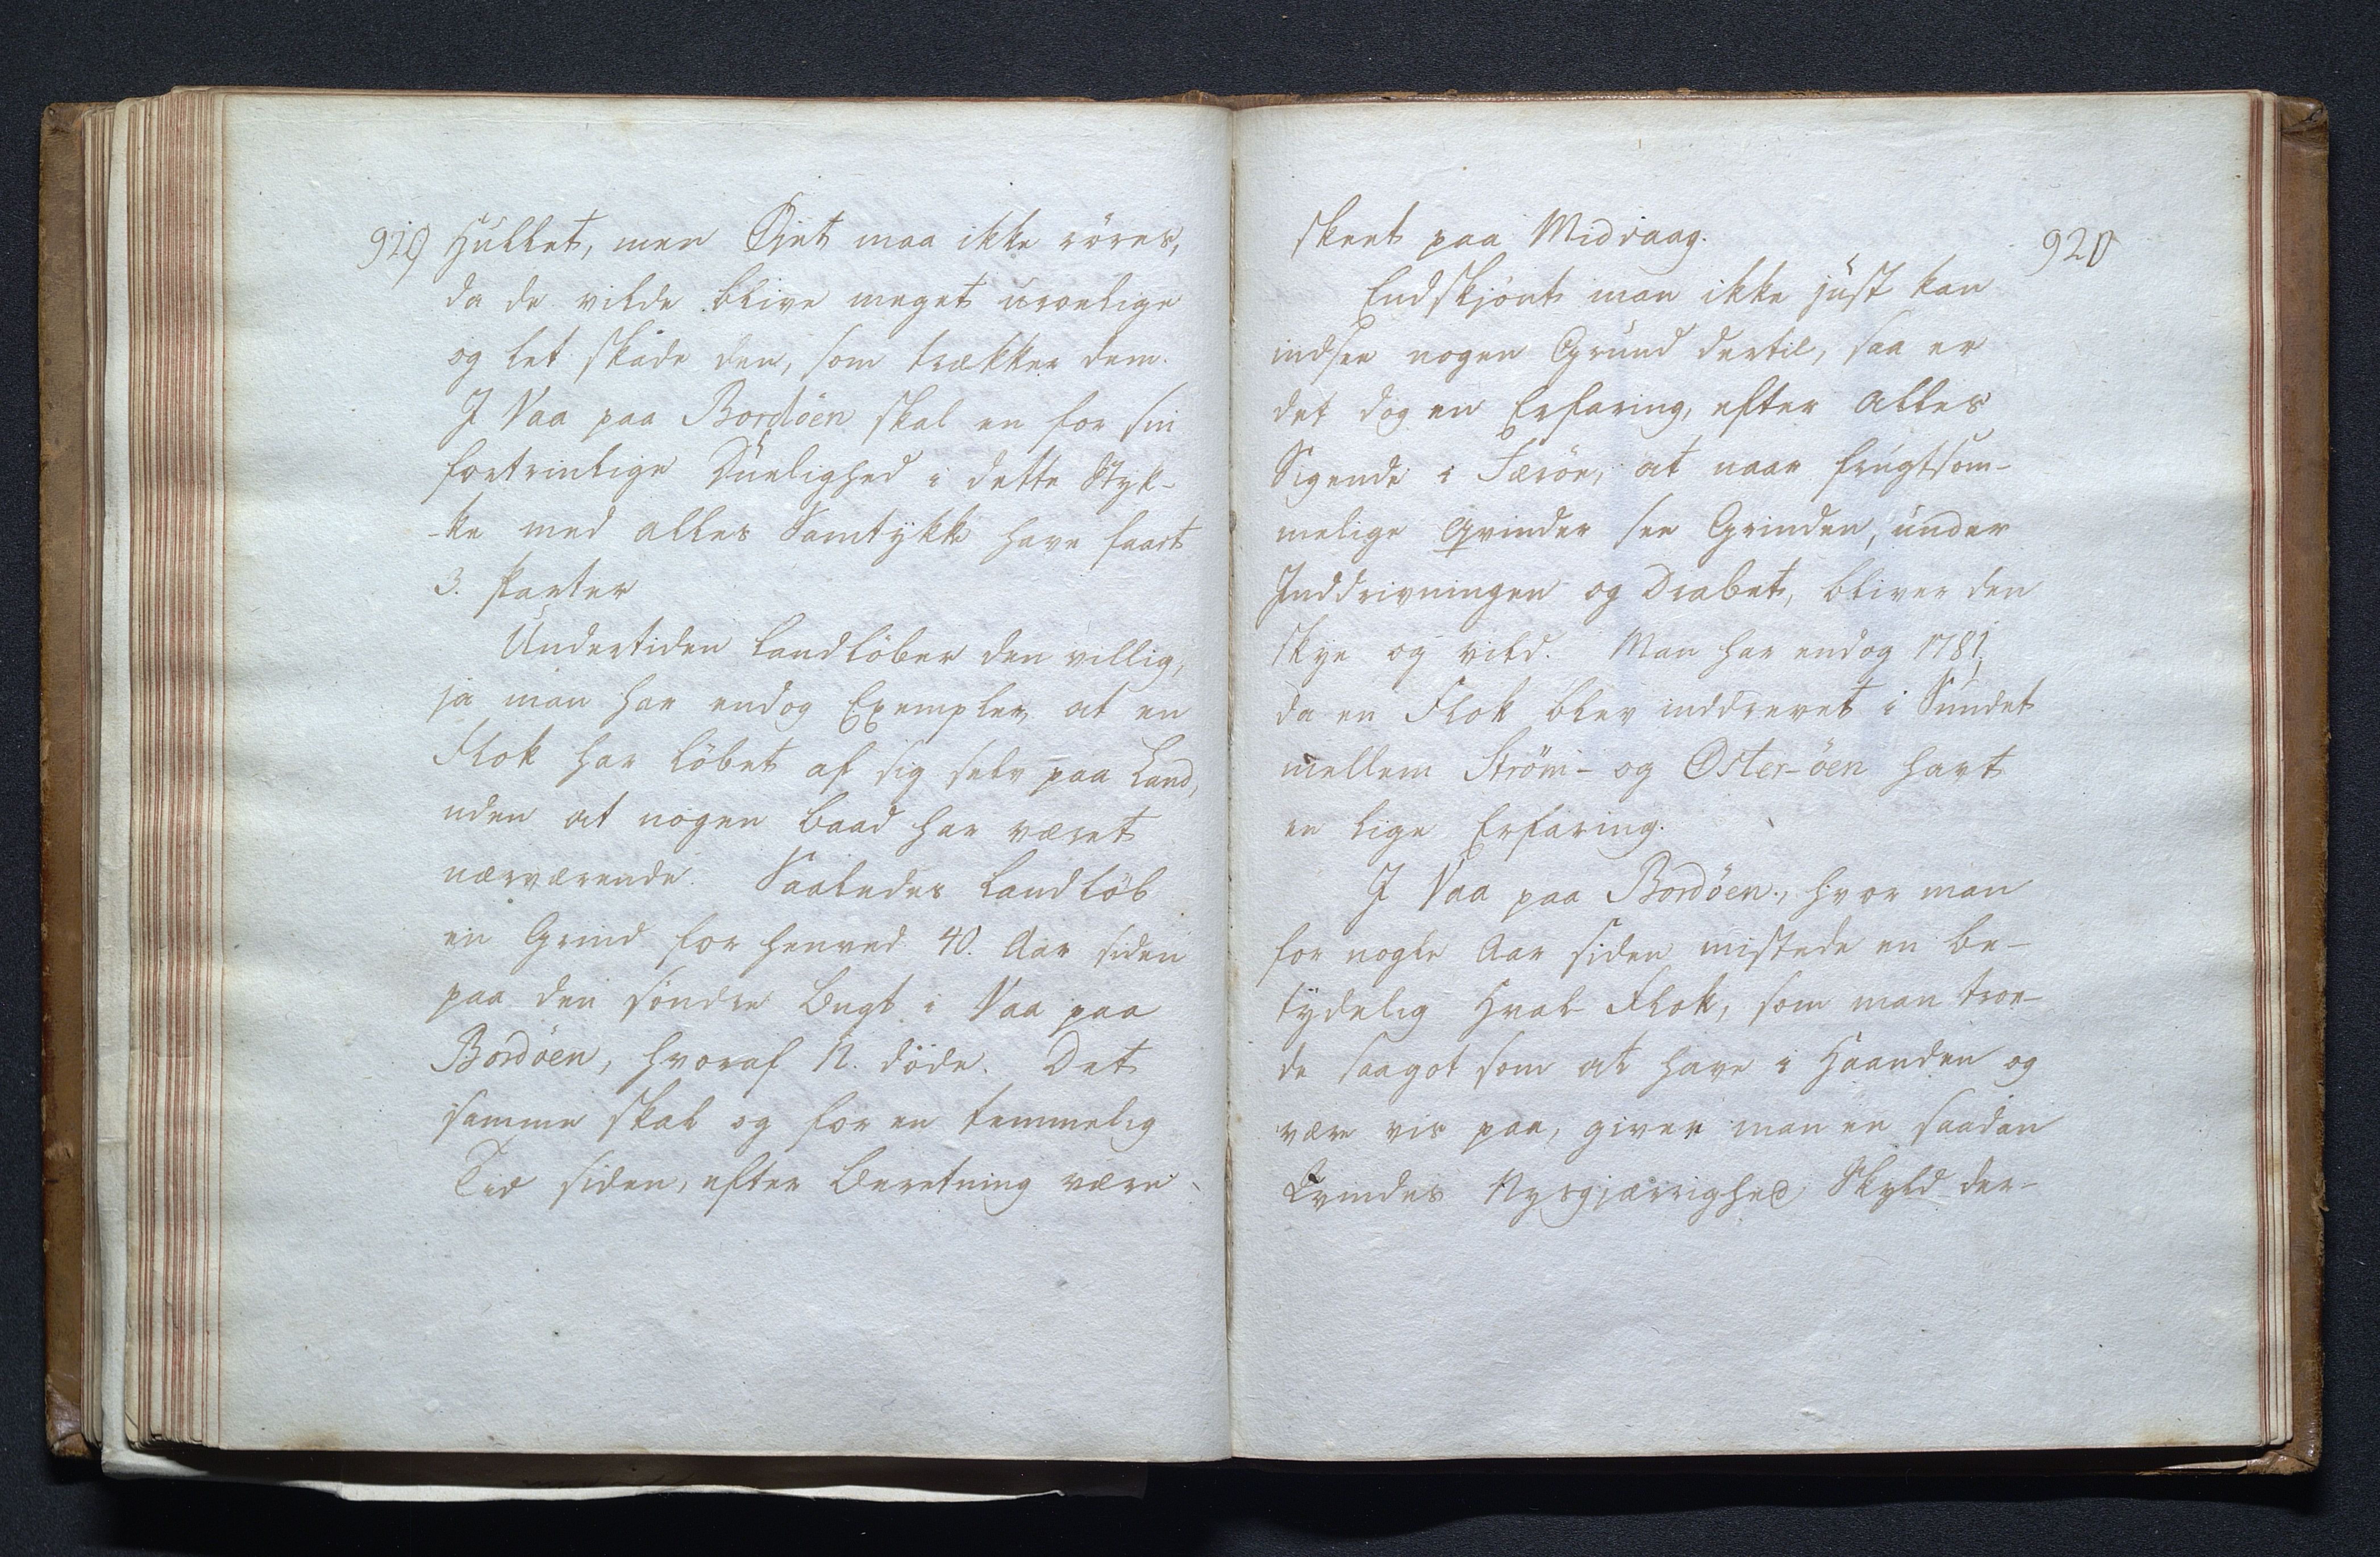 919 Hullet, men Öjet maa ikke röres,
da de vilde blive meget uroelige
og let skade den, som trækker dem.
I Vaa paa Bordöen skal en for sin
fortrinlige Duelighed i dette Styk-
-ke med alles Samtykke have faaet
3. Parter
Undertiden landlöber den villig,
ja man har endog Exempler, at en
Flok har löbet af sig selv paa Land,
uden at nogen Baad har været
nærværende. Saaledes landlöb
en Grind for henved 40. Aar siden
paa den söndre Bugt i Vaa paa
Bordöen, hvoraf 12. döde. Det
samme skal og for en temmelig
Tid siden, efter Beretning være
920
skeet paa Midvaag.
Endskjönt man ikke just kan
indsee nogen Grund dertil, saa er
det dog en Erfaring, efter alles
Sigende i Færöe, at naar frugtsom-
melige Qvinder see Grinden, under
Inddrivningen og Drabet, bliver den
skye og vild. Man har endog 1781,
da en Flok blev inddrevet i Sundet
mellem Ström- og Öster-öen havt
en lige Erfaring.
I Vaa paa Bordöen, hvor man
for nogle Aar siden mistede en be-
tydelig Hval-Flok, som man troe-
de saagot som at have i Haanden og
være vis paa, giver man en saadan
Qvindes Nysgjærrighed Skyld der-